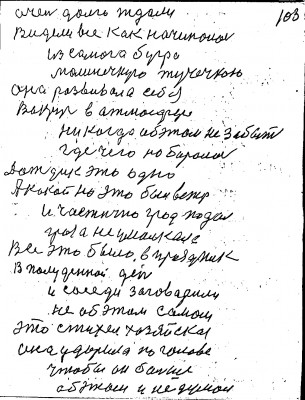 103
очен долго ждали
Видели все как начиналас
из самога бугра
малинечкую тучечкою
она развивала себя
Вакруг в атмосфере
никогда об этом не забыт
где чего набирала
Дождик это одно
А какой на это был ветр
и частично град падал
гроза не умолкала
Все это было, в праздник
В полуденной ден
и соседи заговарили
не об этом самом
это стихея хозяйская
она ударила по голове
чтобы он болше
об этом и не думал